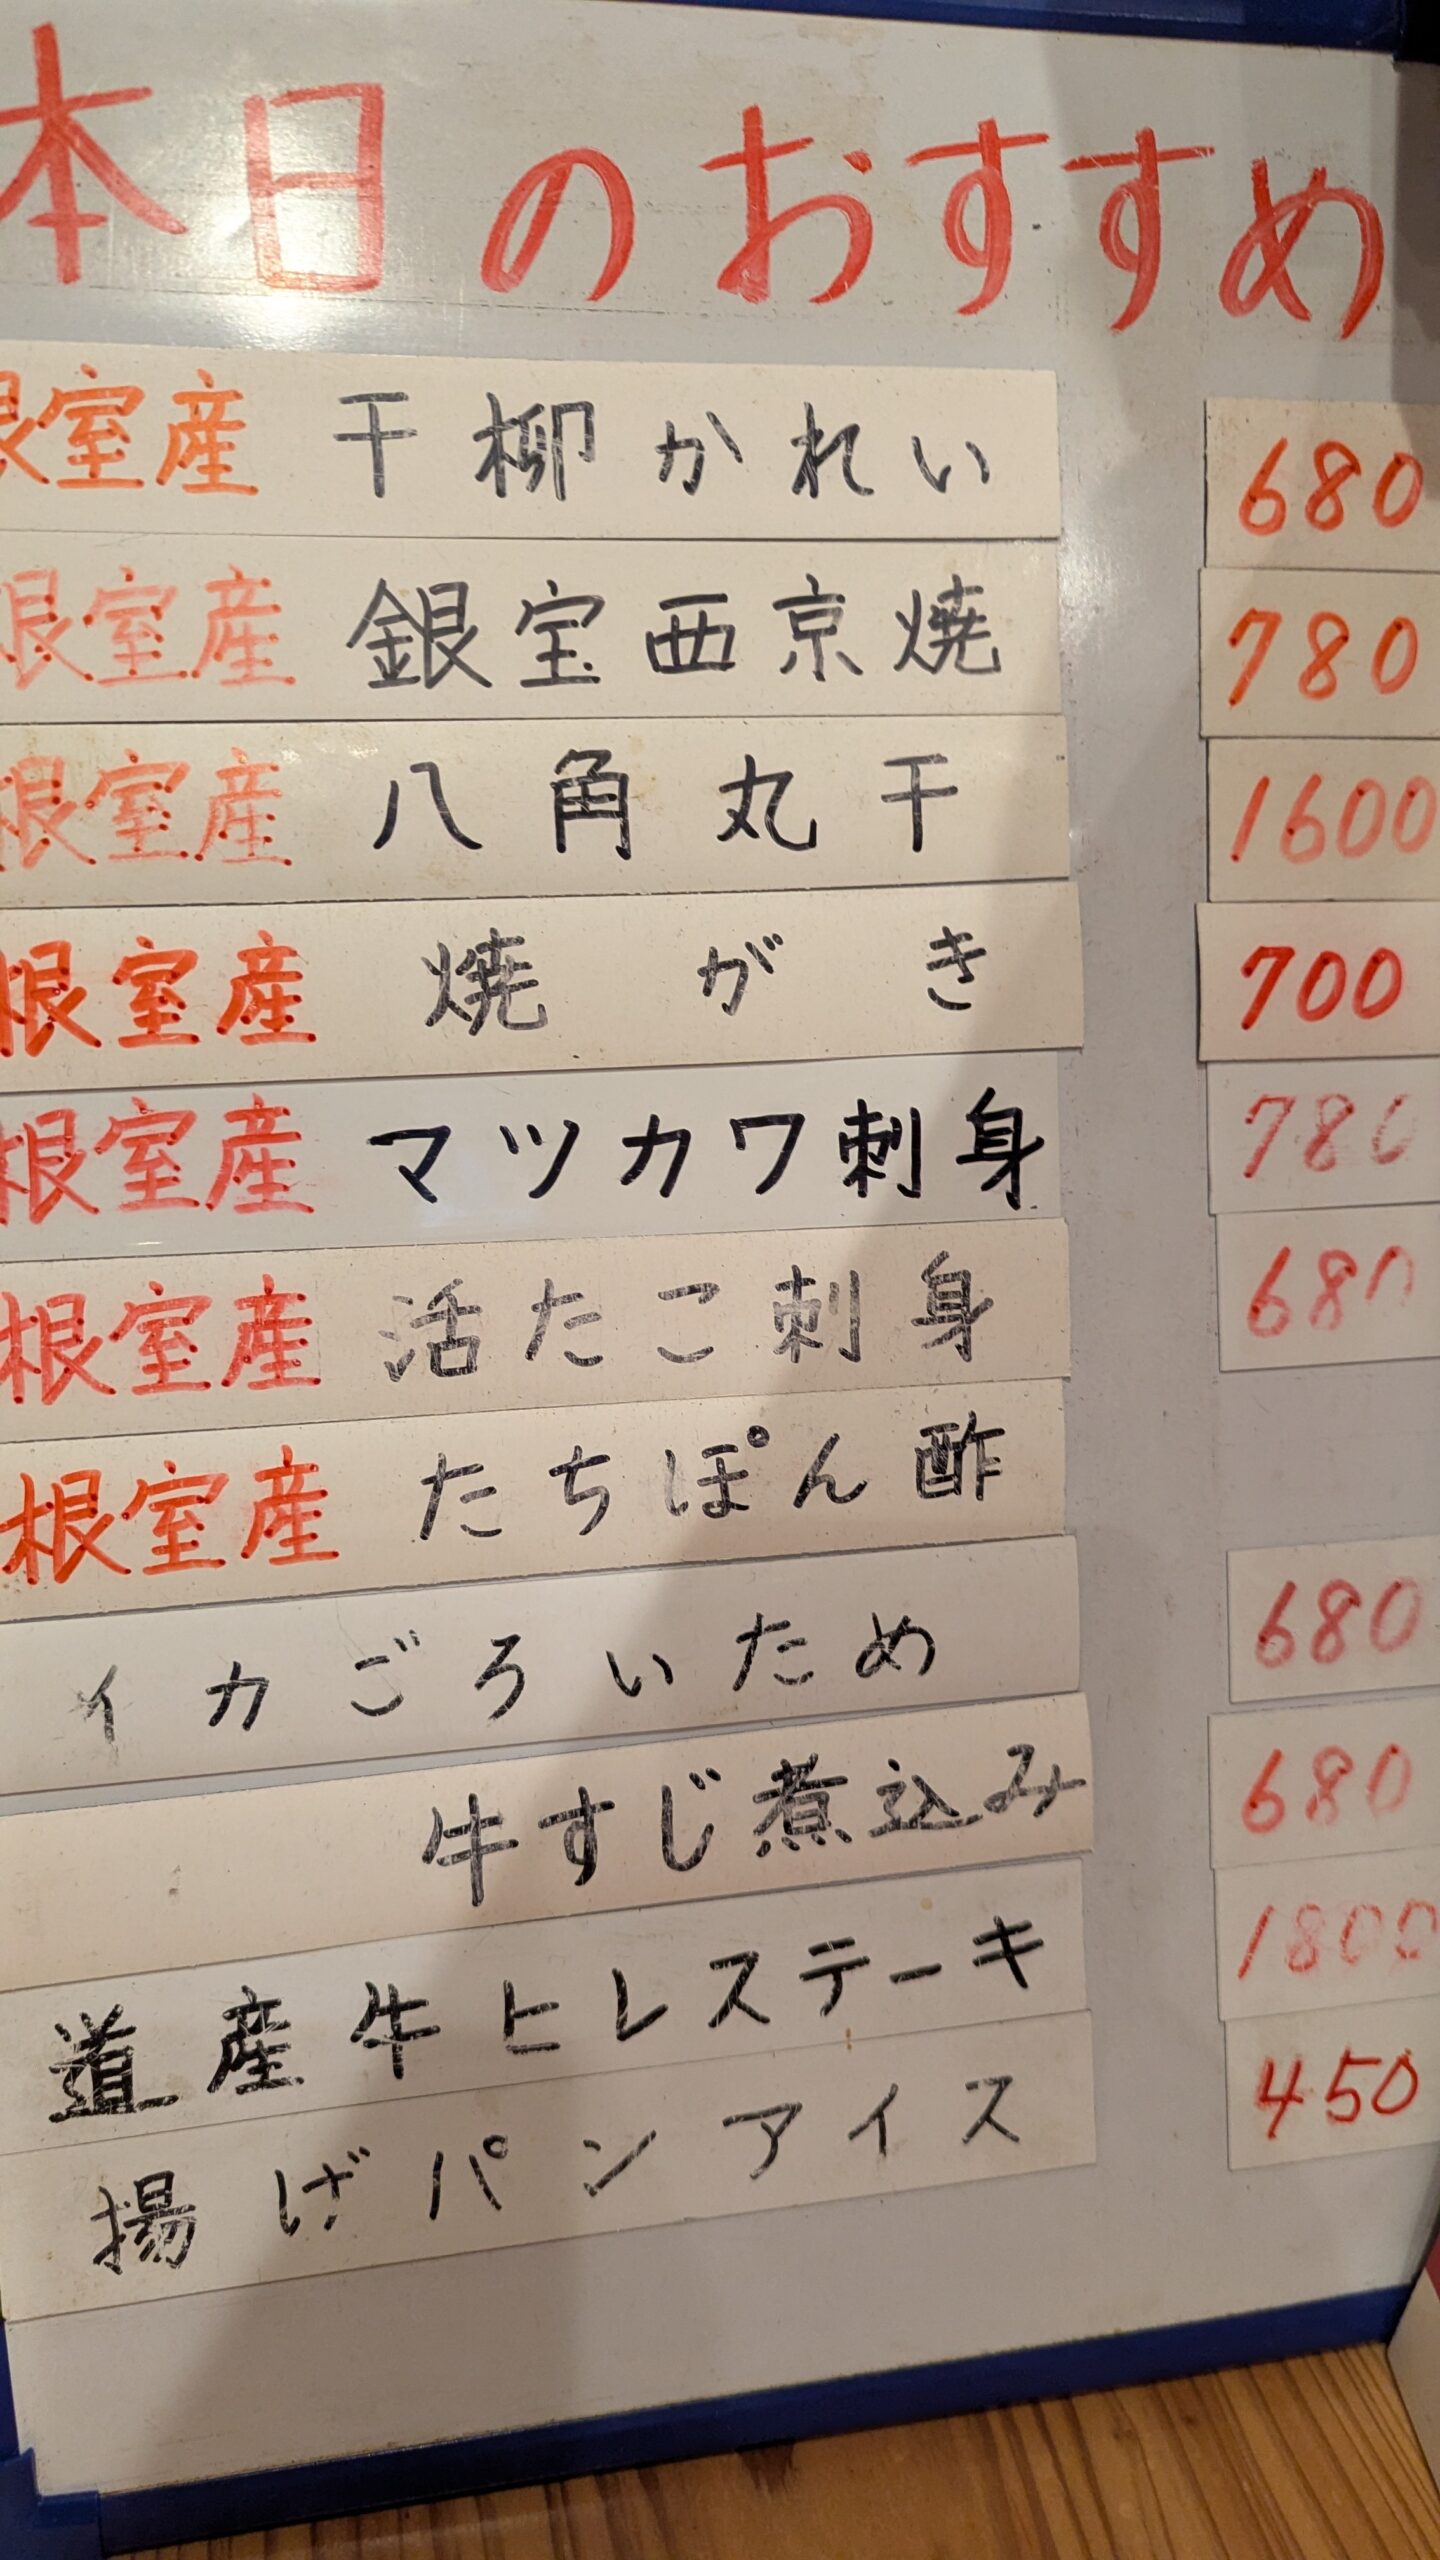 本日のおすすめ
根室産 干柳かれい 680
根室産 銀宝西京焼 780
根室産 八角丸干 1600
根室産 焼がき 700
根室産 マツカワ刺身 780
根室産 活たこ刺身 680
根室産 たちぽん酢
イカごろいため 680
牛すじ煮込み 680
道産牛ヒレステーキ 1800
揚げパンアイス 450